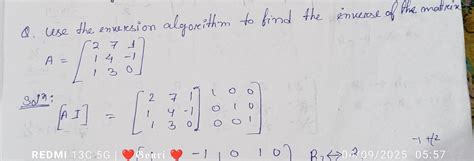 Q. use the inversion algorithm to find the inverse of the matrix
A = [2 7 1
1 4 -1
1 3 0]
Solⁿ:
[A I] = [2 7 1 1 0 0
1 4 -1 0 1 0
1 3 0 0 0 1]
-1 0 1 0
-1 +2
REDMI 13C 5G
09/2025 05:57